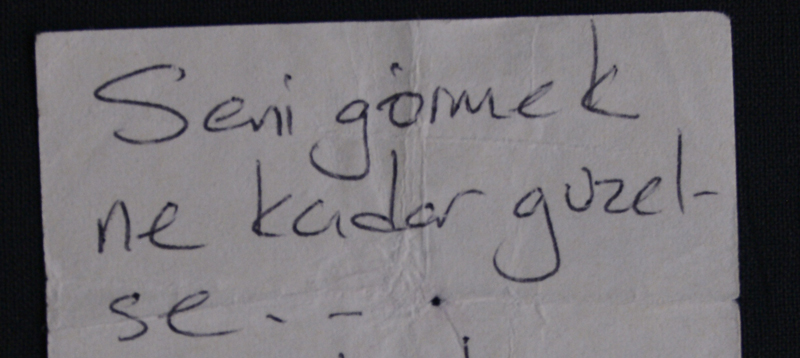 Seni görmek
ne kadar guzel-
se. - -